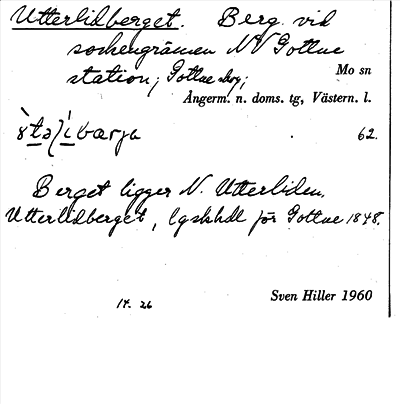 Utterlidberget. Berg vid
sockengränsen NV Gottne
station; Gottne by;
Mo sn
Ångerm. n. doms. tg, Västern. l.
62.
Berget ligger N. Utterliden.
Utterlidberget, lgskhdl för Gottne 1848.
14. 26
Sven Hiller 1960